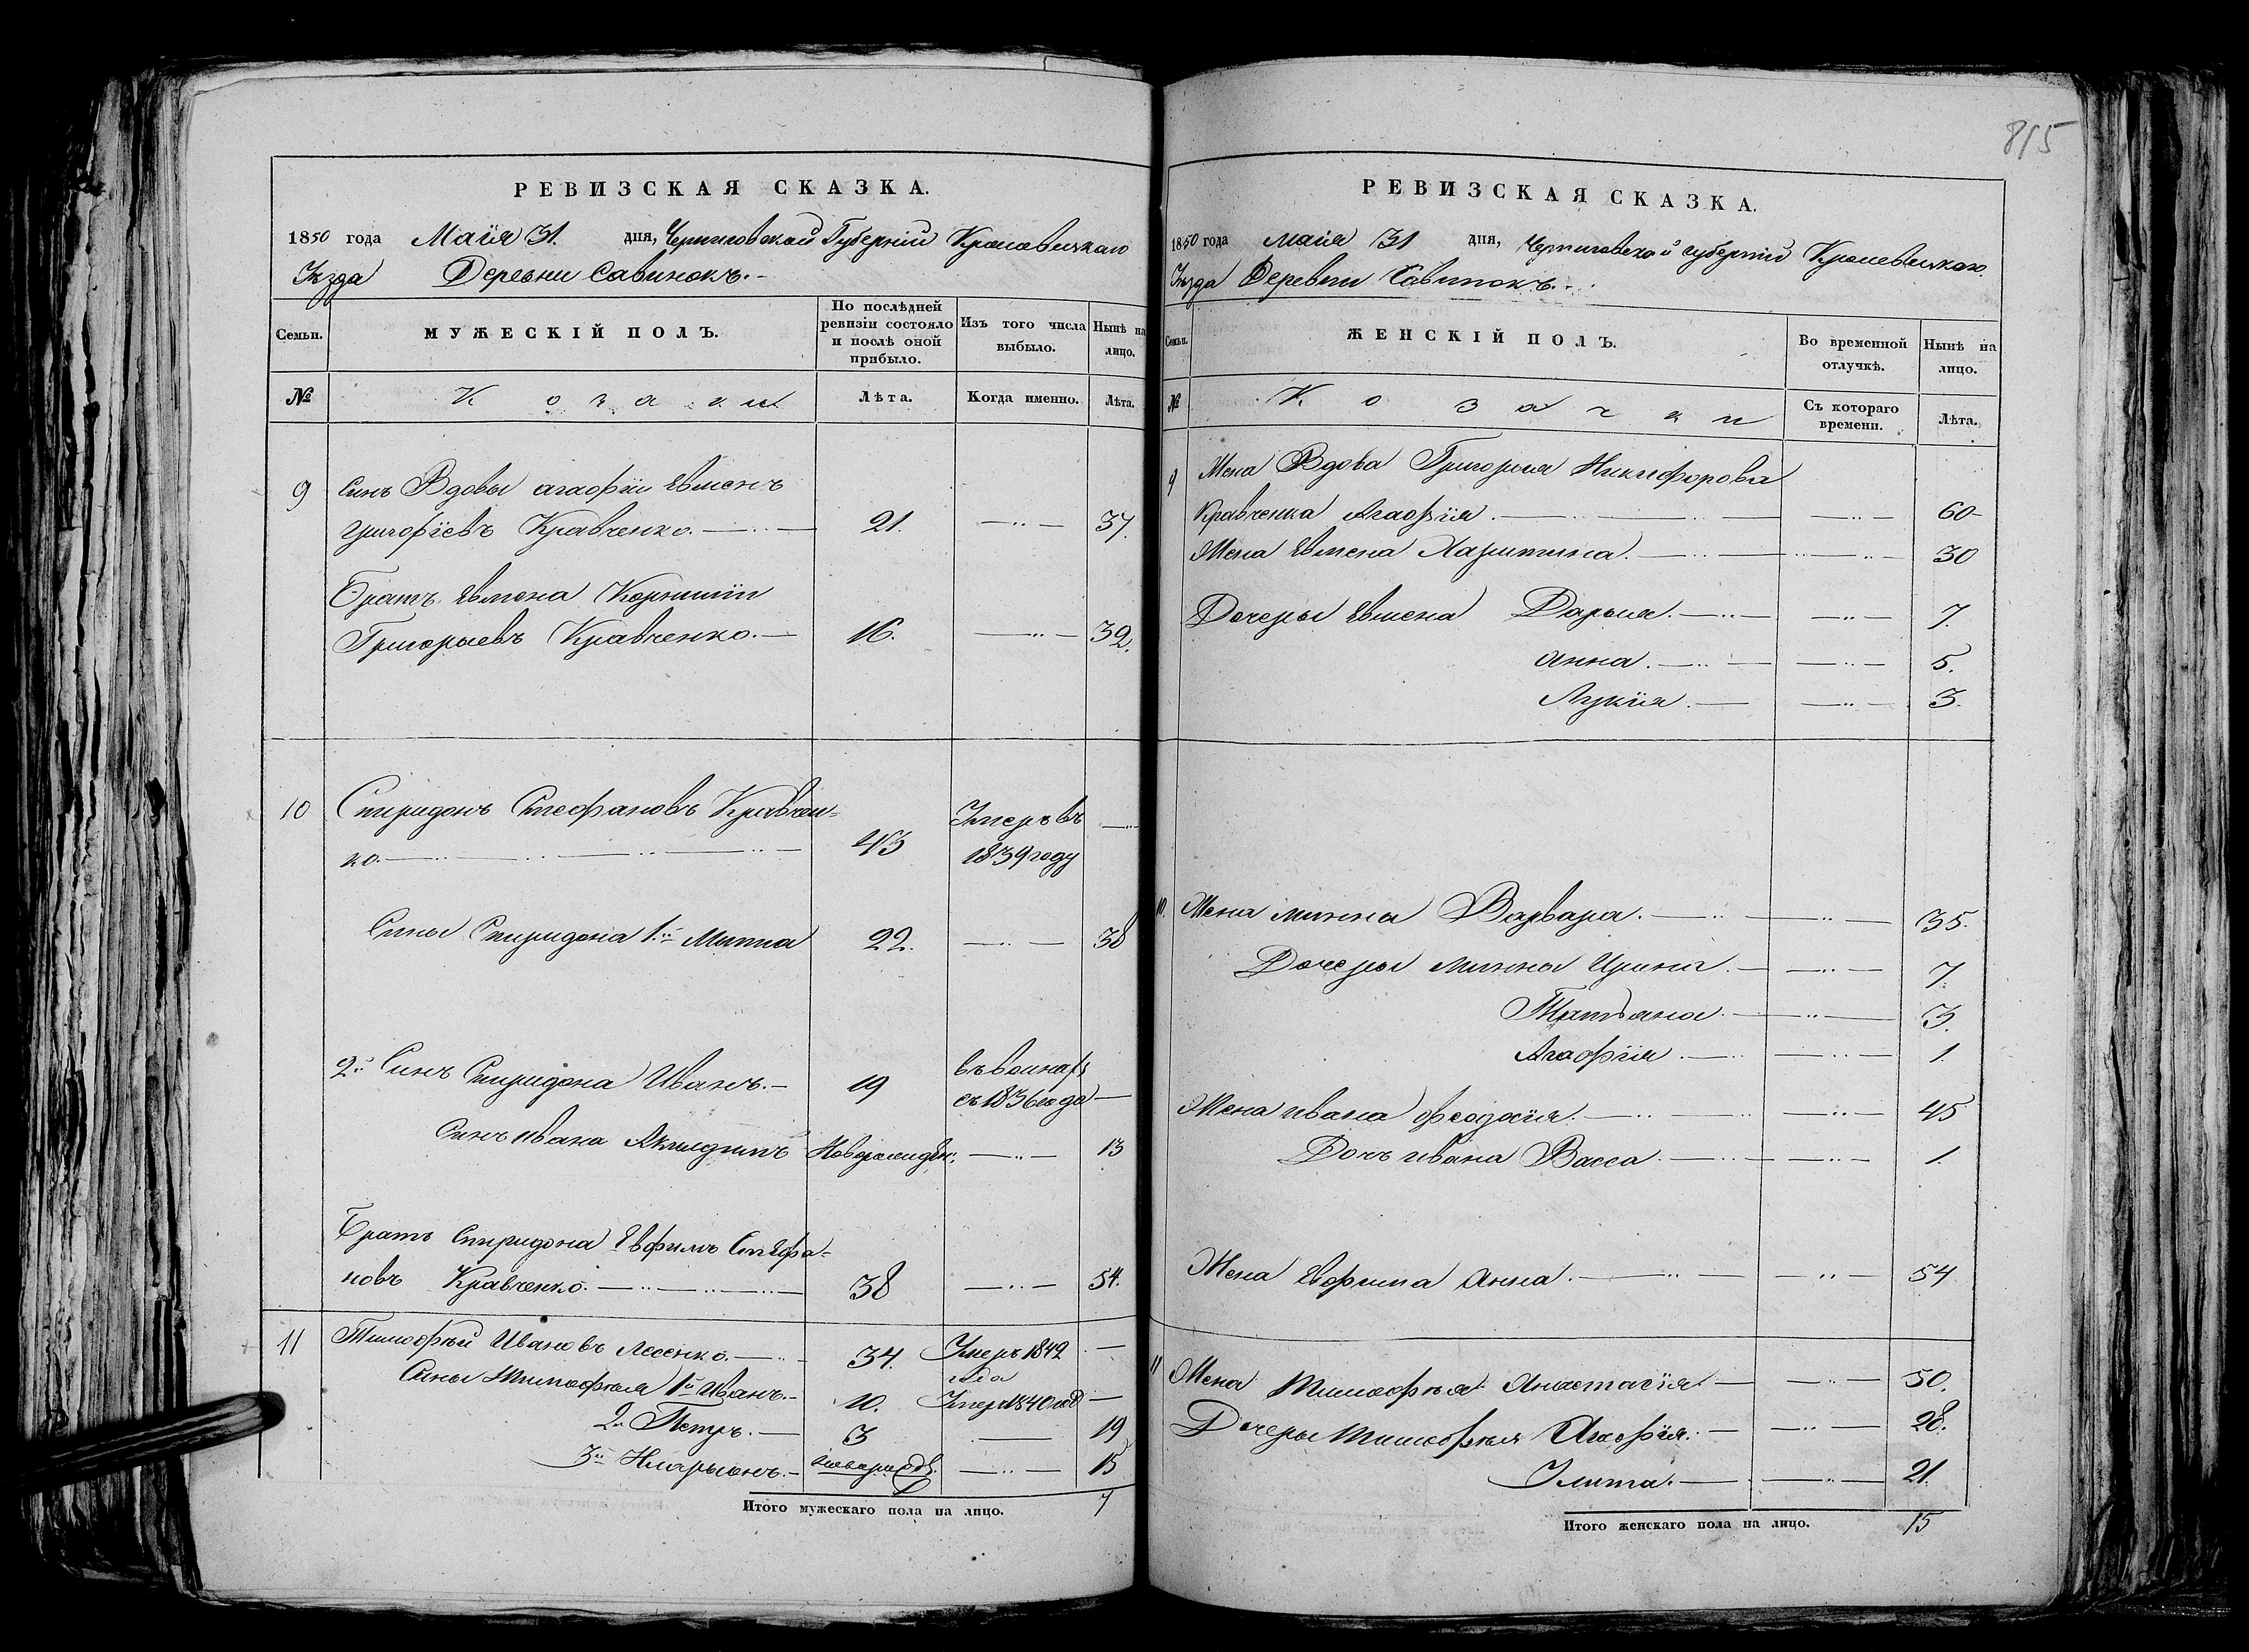 РЕВИЗСКАЯ СКАЗКА.
1850 года Маїя 31. дня, Черниговской Губерніи Кролевецкаго
Уѣзда Деревни Савинокъ.
Семьи.
МУЖЕСКІЙ ПОЛЪ.
По послѣдней ревизіи состояло и послѣ оной прибыло.
Изъ того числа выбыло.
Нынѣ на лицо.
№
Козаки
Лѣта.
Когда именно.
Лѣта.
9 Синъ Вдовы агафіи Евменъ
григоріевъ Кравченко. 21. 37.
Братъ Евмена Корнилій
Григорьевъ Кравченко. 16. 32.
10 Спиридонъ Стефановъ Кравчен-
ко. 43 Умеръ въ 1839 году
Сины Спиридона 1й Минна 22. 38
2й Синъ Спиридона Иванъ. 19 въ бегах съ 1836 года
Синъ ивана Новорожден: 13
Братъ Спиридона Евфимъ Стефа-
новъ Кравченко. 38 54.
11 Тимофѣй Ивановъ Лесенко. 34. Умеръ 1842 года
Сины Тимофѣя 1й Иванъ. 10. Умеръ 1840 год
2й Петръ. 3 19
3й Иларыонъ. новорожд. 15
Итого мужескаго пола на лицо. 7
815
РЕВИЗСКАЯ СКАЗКА.
1850 года маїя 31 дня, Черниговской губерніи Кролевецкаго
Уѣзда Деревни Савинокъ.
Семьи.
ЖЕНСКІЙ ПОЛЪ.
Во временной отлучкѣ.
Нынѣ на лицо.
№
Козачки
Съ котораго времени.
Лѣта.
9 Жена Вдова Григорія Никифорова
Кравченка Агафія. 60
Жена Евмена Харитина. 30
Дочеры Евмена Дарья. 7.
Анна. 5.
Лукія. 3.
10. Жена минны Варвара. 35.
Дочеры минны Ирина. 7.
Татьяна. 3.
Агафія. 1.
Жена ивана феодосія. 45
Дочь ивана Васса. 1.
Жена Евфима Анна. 54
11 Жена Тимофѣя Анастасія. 50.
Дочеры Тимофѣя Агафія. 28.
Улита. 21.
Итого женскаго пола на лицо. 15